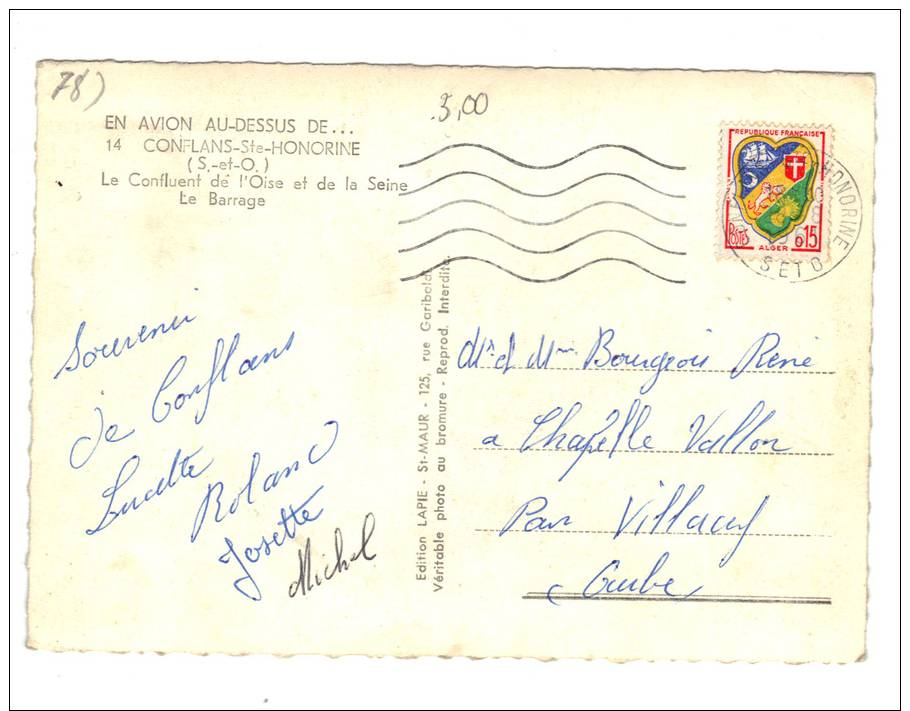 78)
3,00
EN AVION AU-DESSUS DE...
14 CONFLANS-Ste-HONORINE
(S.-et-O.)
Le Confluent de l'Oise et de la Seine
Le Barrage
REPUBLIQUE FRANÇAISE
POSTES
ALGER
0,15
HONORINE
S ET O
Souvenir
de Conflans
Lucette
Roland
Josette
Michel
Edition LAPIE - St-MAUR - 125, rue Garibaldi
Véritable photo au bromure - Reprod. Interdite.
Mr et Mme Bourgeois René
a Chapelle Vallon
Par Villacerf
Aube